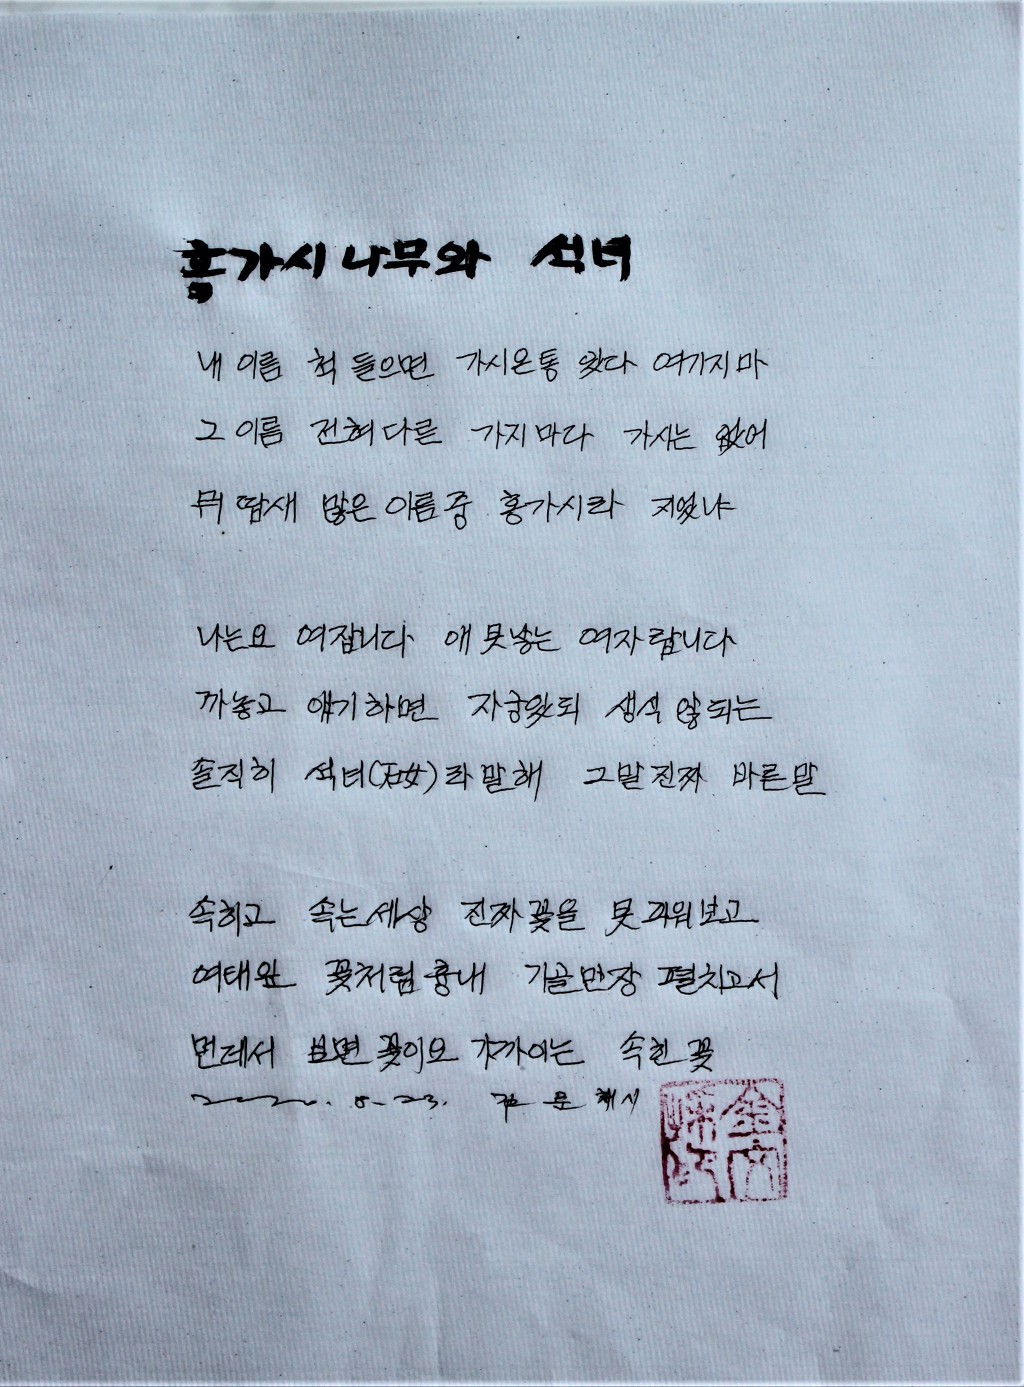 홍가시나무와 석녀
내 이름 척 들으면 가시온통 있다 여기지마
그 이름 전혀다른 가지마다 가시는 없어
뭐 땜새 많은 이름중 홍가시라 지었냐
나는요 여잡니다 애 못낳는 여자랍니다
까놓고 얘기하면 자궁있되 생식 않되는
솔직히 석녀(石女)라 말해 그말진짜 바른말
속히고 속는세상 진짜꽃을 못 피워보고
여태완 꽃처럼흉내 기골만장 펼치고서
먼데서 보면 꽃이오 가까이는 속한 꽃
2020. 5-23. 김 문
金文